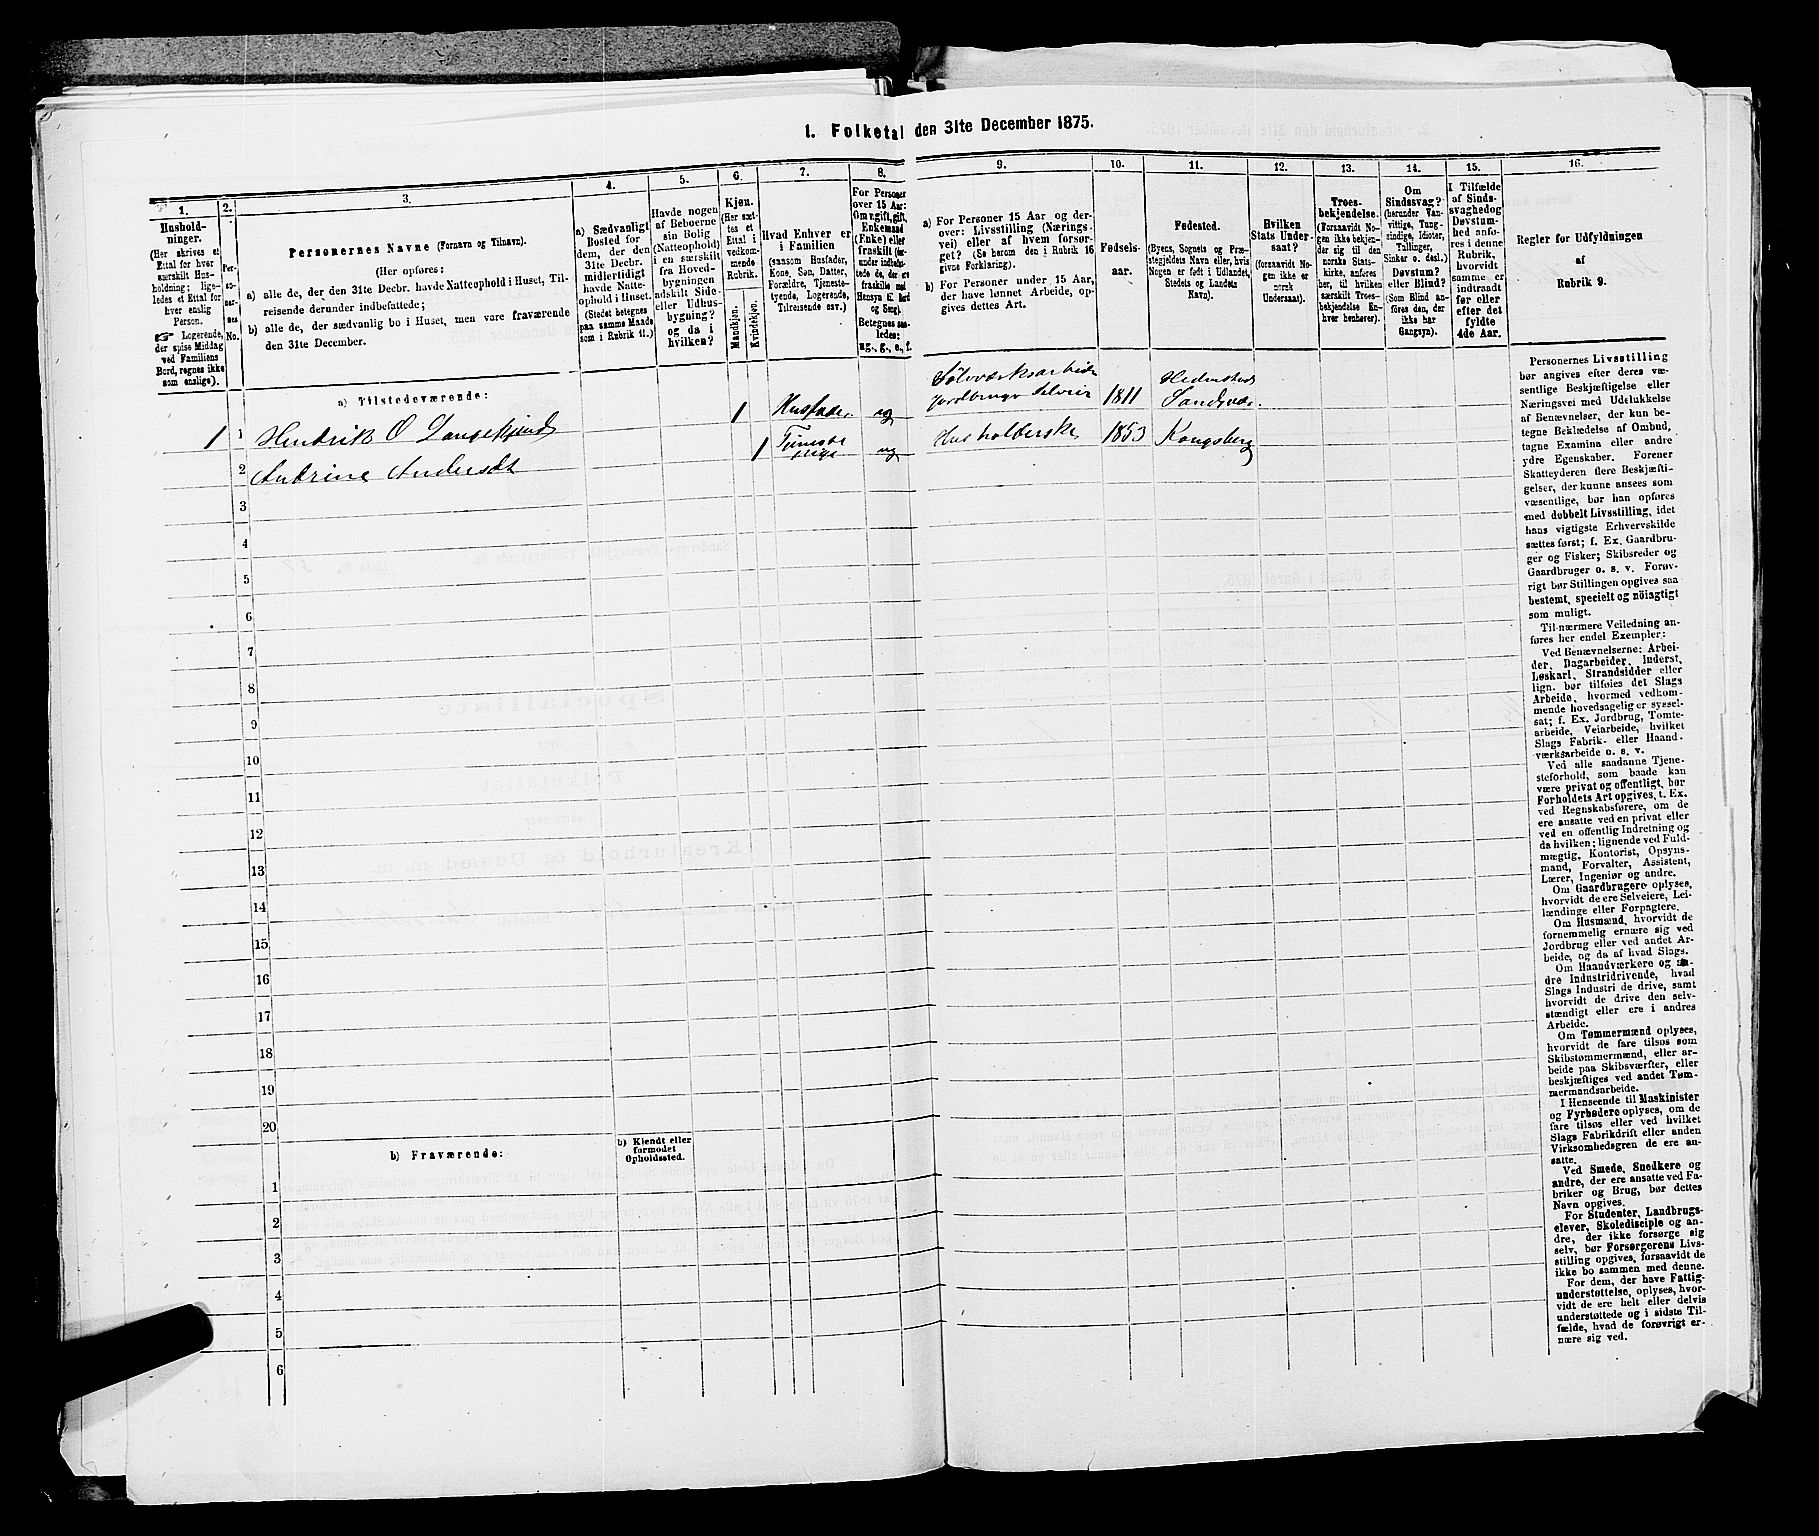 1. Folketal den 31te December 1875.
1.
Husholdninger.
(Her skrives et
Ettal for hver
særskilt Husholdning;
ligeledes et Ettal for
hver enslig
Person.
☞ Logerende,
der spise Middag
ved Familiens
Bord, regnes ikke
som enslige).
2.
Personernes
No.
3.
Personernes Navne (Fornavn og Tilnavn).
(Her opføres:
a) alle de, der den 31te Decbr. havde Natteophold i Huset, Tilreisende derunder indbefattede;
b) alle de, der sædvanlig bo i Huset, men vare fraværende
den 31te December.
4.
a) Sædvanligt
Bosted for
dem, der den
31te Decbr.
midlertidigt
havde Natteophold
i Huset.
(Stedet betegnes
paa samme Maade
som i Rubrik 11.)
5.
Havde nogen
af Beboerne
sin Bolig
(Natteophold)
i en særskilt
fra Hovedbygningen
adskilt Side-
eller Udhusbygning?
og da i
hvilken?
6.
Kjøn.
(Her sættes
et
Ettal i
vedkommende
Rubrik.
Mandkjøn.
Kvindekjøn.
7.
Hvad Enhver er
i Familien
(saasom Husfader,
Kone, Søn, Datter,
Forældre, Tjenestetyende,
Logerende,
Tilreisende osv.)
8.
For Personer
over 15 Aar:
Om ugift, gift,
Enkemand
(Enke) eller
fraskilt (herunder
indbefattede
de, der ere
fraskilte med
Hensyn til Bord
og Seng).
Betegnes saaledes:
ug., g., e., f.
9.
a) For Personer 15 Aar og derover:
Livsstilling (Næringsvei)
eller af hvem forsørget?
(Se herom den i Rubrik 16
givne Forklaring).
b) For Personer under 15 Aar,
der have lønnet Arbeide, opgives
dettes Art.
10.
Fødselsaar.
11.
Fødested.
(Byens, Sognets og Præstegjeldets
Navn eller, hvis
Nogen er født i Udlandet,
Stedets og Landets
Navn).
12.
Hvilken
Stats Undersaat?
(foraavidt Nogen
ikke er
norsk
Undersaat).
13.
Troesbekjendelse.
(Forsaavidt Nogen
ikke bekjender
sig til den
norske Statskirke,
anføres
her, til hvilken
særskilt Troesbekjendelse
Enhver
henhører).
14.
Om
Sindssvag?
(herunder Vanvittige,
Tungsindige,
Idioter,
Tullinger,
Sinker o. desl.)
Døvstum?
eller Blind?
(Som Blind anføres
den, der
ikke har
Gangsyn).
15.
I Tilfælde
af Sindssvaghed
og
Døvstumhed
anføres
i denne
Rubrik,
hvorvidt
samme er
indtraadt
før eller
efter det
fyldte
4de Aar.
16.
Regler for Udfyldningen
af
Rubrik 9.
a) Tilstedeværende:
1 1 Hendrik O Langekjend 1 Husfader ug Sølvværksarbeider Jordbruger Selveier 1811 Hedenstad Sandsvær
2 Andrine Andersdt 1 Tjeneste pige ug Husholderske 1853 Kongsberg
3
4
5
6
7
8
9
10
11
12
13
14
15
16
17
18
19
20
b) Fraværende:
b) Kjendt eller
formodet
Opholdssted.
1
2
3
4
5
6
Personernes Livsstilling
bør angives efter deres væsentlige
Beskjæftigelse eller
Næringsvei med Udelukkelse
af Benævnelser, der kun betegne
Beklædelse af Ombud,
tagne Examina eller andre
ydre Egenskaber. Forener
Skatteyderen flere Beskjæftigelser,
der kunne ansees som
væsentlige, bør han opføres
med dobbelt Livsstilling, idet
hans vigtigste Erhvervskilde
sættes først; f. Ex. Gaardbruger
og Fisker; Skibsreder og
Gaardbruger o. s. v. Forøvrigt
bør Stillingen opgives saa
bestemt, specielt og nöiagtigt
som muligt.
Til nærmere Veiledning anføres
her endel Exempler:
Ved Benævnelserne: Arbeider,
Dagarbeider, Inderst,
Løskarl, Strandsidder eller
lign. bør tilføies det Slags
Arbeide, hvormed vedkommende
hovedsagelig er sysselsat;
f. Ex. Jordbrug, Tomtearbeide,
Veiarbeide, hvilket
Slags Fabrik- eller Haandværksarbeide
o. s. v.
Ved alle saadanne Tjenesteforhold,
som baade kan
være privat og offentligt, bør
Forholdets Art opgives, t. Ex.
ved Regnskabsførere, om de
ere ansatte ved en privat eller
ved en offentlig Indretning og
da hvilken; lignende ved Fuldmægtig,
Kontorist, Opsynsmand,
Forvalter, Assistent,
Lærer, Ingeniør og andre.
Om Gaardbrugere oplyses,
hvorvidt de ere Selveiere, Leilændinge
eller Forpagtere.
Om Husmænd, hvorvidt de
fornemmelig ernære sig ved
Jordbrug eller ved andet Arbeide,
og da af hvad Slags.
Om Haandværkere og andre
Industridrivende, hvad
Slags Industri de drive, samt
hvorvidt de drive den selvstændigt
eller ere i andres
Arbeide.
Om Tømmermænd oplyses,
hvorvidt de fare tilsøs som
Skibstømmermænd, eller arbeide
paa Skibsværfter, eller
beskjæftiges ved andet Tømmermandsarbeide.
I Henseende til Maskinister
og Fyrbødere oplyses, om de
fare tilsøs eller ved hvilket
Slags Fabrikdrift eller anden
Virksomhed de ere ansatte.
Ved Smede, Snedkere og
andre, der ere ansatte ved Fabriker
og Brug, bør dettes
Navn opgives.
For Studenter, Landbrugselever,
Skoledisciple og andre,
der ikke forsørge sig
selv, bør Forsørgerens Livsstilling
opgives, forsaavidt de
ikke bo sammen med denne.
For dem, der have Fattigunderstøttelse,
oplyses, hvorvidt
de ere helt eller delvis
understøttede og i sidste Tilfælde,
hvad de forøvrigt ernære
sig ved.